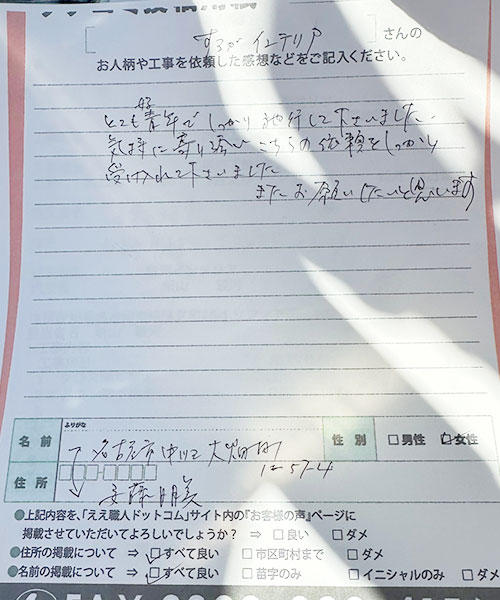 するが インテリア さんの
お人柄や工事を依頼した感想などをご記入ください。
とても好青年でしっかり施行して下さいました
気持に寄り添いこちらの依頼をしっかり
受け入れて下さいました
またお願いしたいと思います
ふりがな
名前 名古屋市中川区 1-57-4 性別 □男性 □女性
住所 安藤明美
●上記内容を、「ええ職人ドットコム」サイト内の『お客様の声』ページに
掲載させていただいてよろしいでしょうか? ⇒ □良い □ダメ
●住所の掲載について ⇒ □すべて良い □市区町村まで □ダメ
●名前の掲載について ⇒ □すべて良い □苗字のみ □イニシャルのみ □ダメ